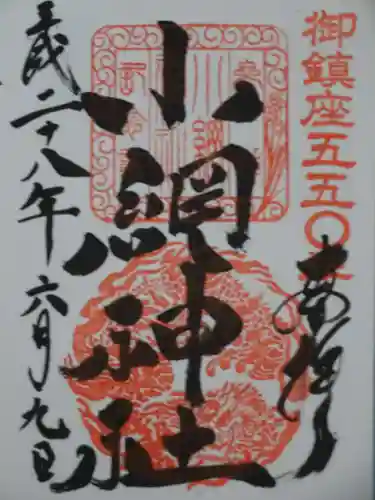 御鎮座五五〇年
奉拝
小網神社
平成二十八年六月九日